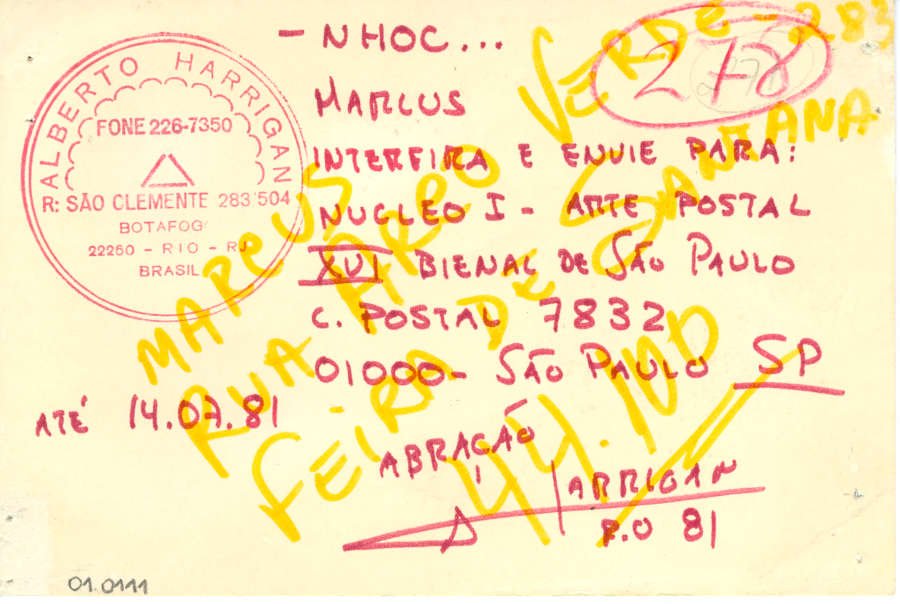 ALBERTO HARRIGAN
FONE 226-7350
R: SÃO CLEMENTE 283 504
BOTAFOG
22260 - RIO - RJ
BRASIL
- NHOC...
278
MARCUS
INTERFIRA E ENVIE PARA:
NUCLEO I - ARTE POSTAL
XVI BIENAL DE SÃO PAULO
C. POSTAL 7832
01000 - SÃO PAULO SP
ATÉ 14.07.81
ABRAÇÃO
HARRIGAN
R.O 81
MARCUS
RUA ARCO VERDE - 283
FEIRA DE SANTANA
44.100
01.0111